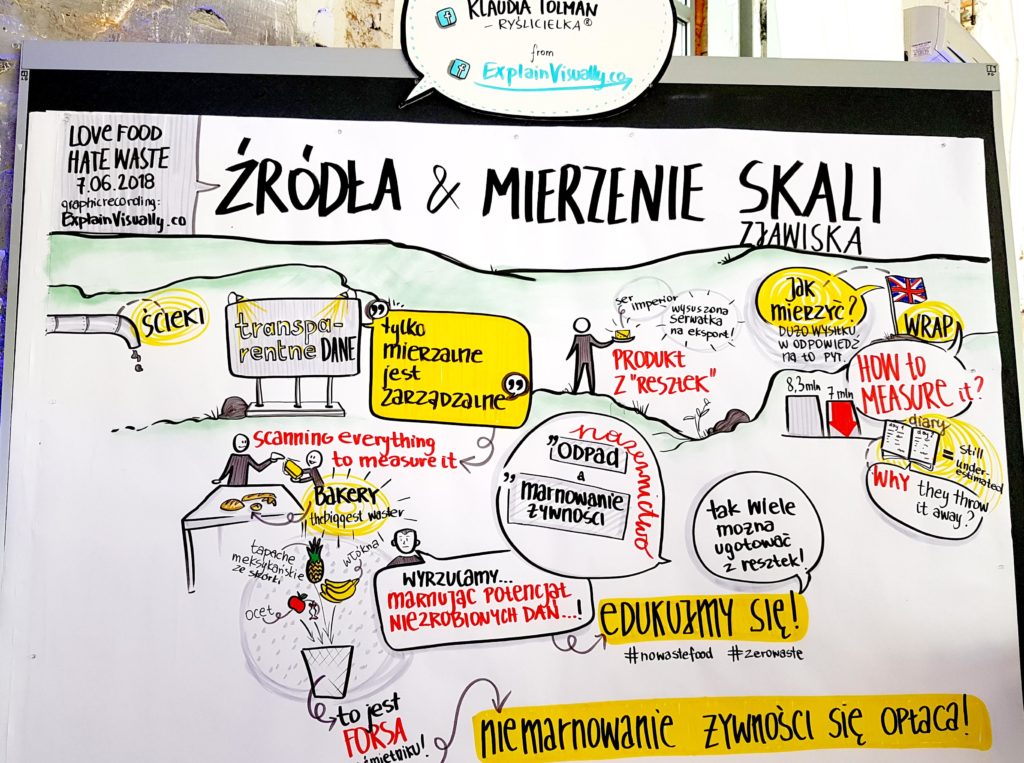 KLAUDIA TOLMAN
- RYŚLICIELKA®
from
ExplainVisually.co
LOVE FOOD
HATE WASTE
7.06.2018
graphicrecording:
ExplainVisually.co
ŹRÓDŁA & MIERZENIE SKALI
ZJAWISKA
ŚCIEKI
transpa-
rentne DANE
"tylko
mierzalne
jest
zarządzalne"
ser imperior
wysuszona
serwatka
na eksport!
PRODUKT
Z "RESZTEK"
jak
mierzyć?
DUŻO WYSIŁKU
W ODPOWIEDŹ
NA TO PYT.
WRAP
8,3mln
7 mln
HOW to
MEASURE it?
diary
= still
under-
estimated
WHY they throw
it away?
scanning everything
to measure it
BAKERY
the biggest waster
nazewnictwo
"ODPAD
a
"marnowanie
żywności
tak wiele
można
ugotować
z resztek!
tapache
meksykańskie
ze skórki
włókna!
ocet
WYRZUCAMY...
MARNUJĄC POTENCJAŁ
NIEZROBIONYCH DAŃ...!
EDUKUJMY SIĘ!
#nowastefood #zerowaste
to jest
FORSA
śmietniku!
niemarnowanie żywności się opłaca!